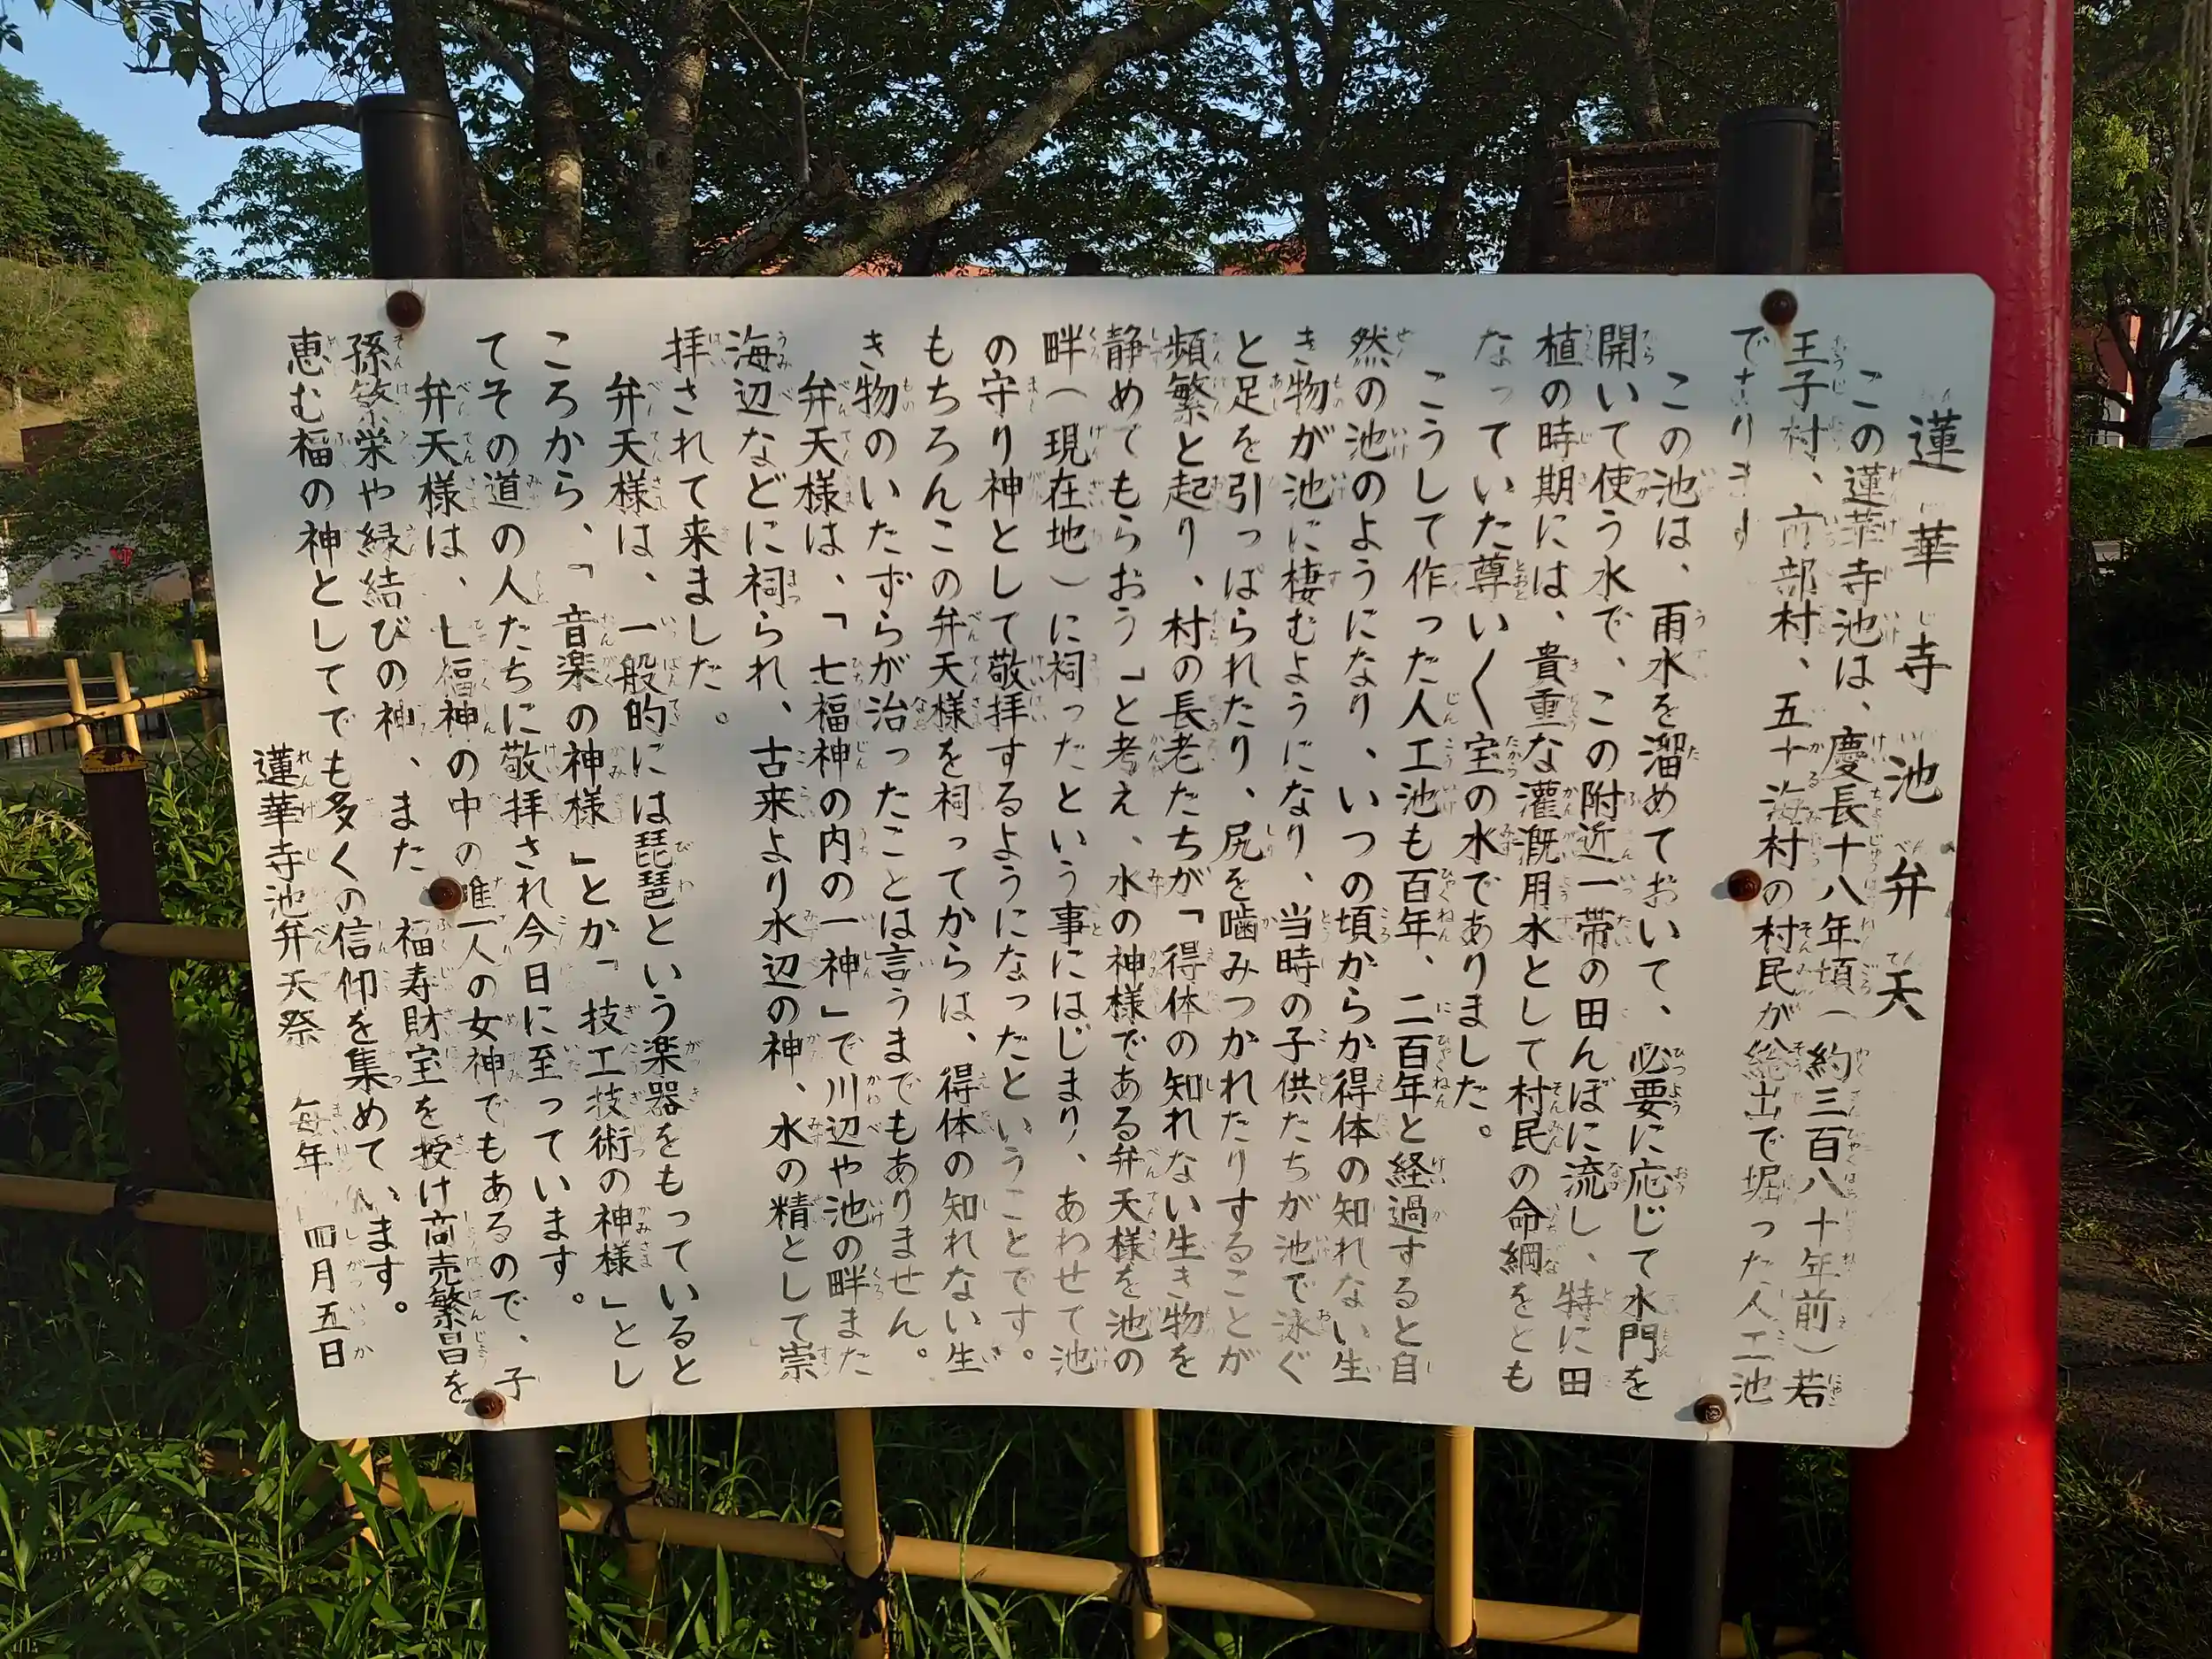 蓮華寺池弁天
この蓮華寺池は、慶長十八年頃(約三百八十年前)若
王子村、市部村、五十海村の村民が総出で堀った人工池
であります
この池は、雨水を溜めておいて、必要に応じて水門を
開いて使う水で、この附近一帯の田んぼに流し、特に田
植の時期には、貴重な灌漑用水として村民の命綱をとも
なっていた尊いく宝の水でありました。
こうして作った人工池も百年、二百年と経過すると自
然の池のようになり、いつの頃からか得体の知れない生
き物が池に棲むようになり、当時の子供たちが池で泳ぐ
と足を引っぱられたり、尻を噛みつかれたりすることが
頻繁と起り、村の長老たちが「得体の知れない生き物を
静めてもらおう「と考え、水の神様である弁天様を池の
畔(現在地)に祠ったという事にはじまり、あわせて池
の守り神として敬拝するようになったということです。
もちろんこの弁天様を祠ってからは、得体の知れない生
き物のいたずらが治ったことは言うまでもありません。
弁天様は、「七福神の内の一神」で川辺や池の畔また
海辺などに祠られ、古来より水辺の神、水の精として崇
拝されて来ました。
弁天様は、一般的には琵琶という楽器をもっていると
ころから、「音楽の神様」とか「技工技術の神様」とし
てその道の人たちに敬拝され今日に至っています。
弁天様は、七福神の中の唯一人の女神でもあるので、子
孫繁栄や縁結びの神、また福寿財宝を授け商売繁昌を
恵む福の神としてでも多くの信仰を集めています。
蓮華寺池弁天祭 毎年 四月五日